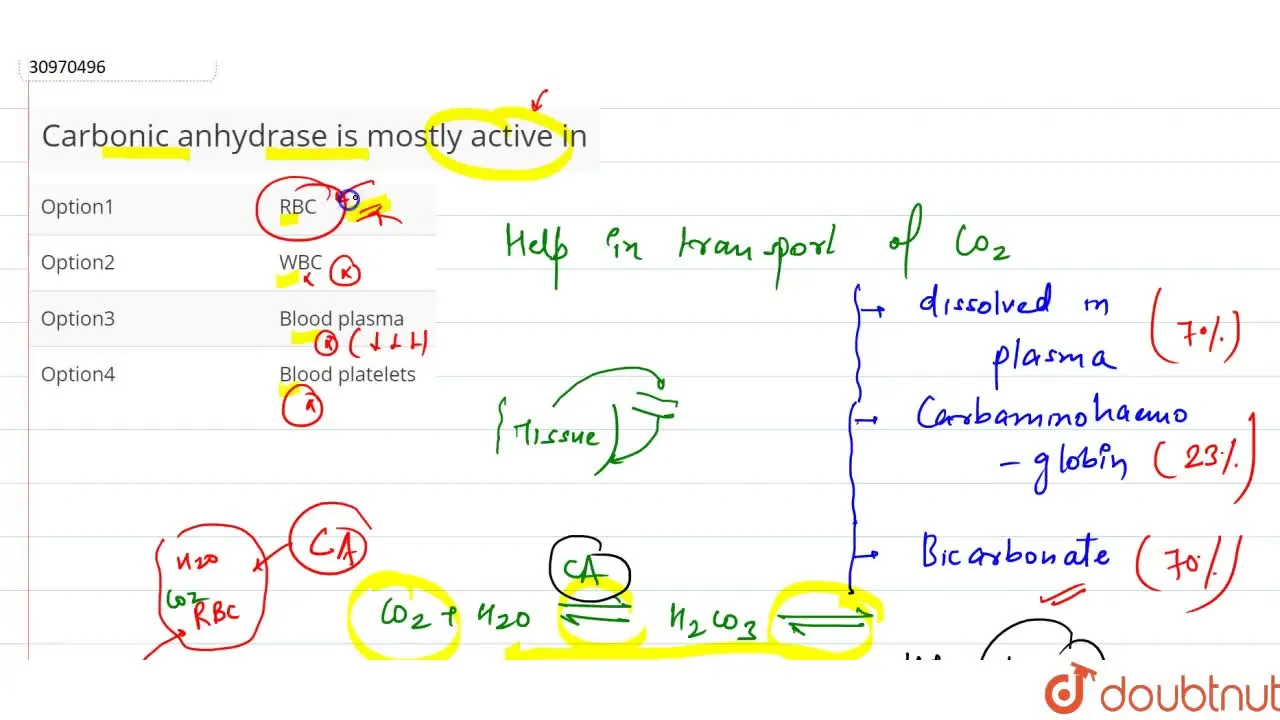 30970496
Carbonic anhydrase is mostly active in
Option1 RBC
Option2 WBC
Option3 Blood plasma
Option4 Blood platelets
Help in transport of CO2
dissolved in (7%)
plasma
Carbaminohaemo
- globin (23%)
Bicarbonate (70%)
Tissue
CA
H2O
CO2
RBC
CA
CO2 + H2O ⇌ H2CO3 ⇌
doubtnut